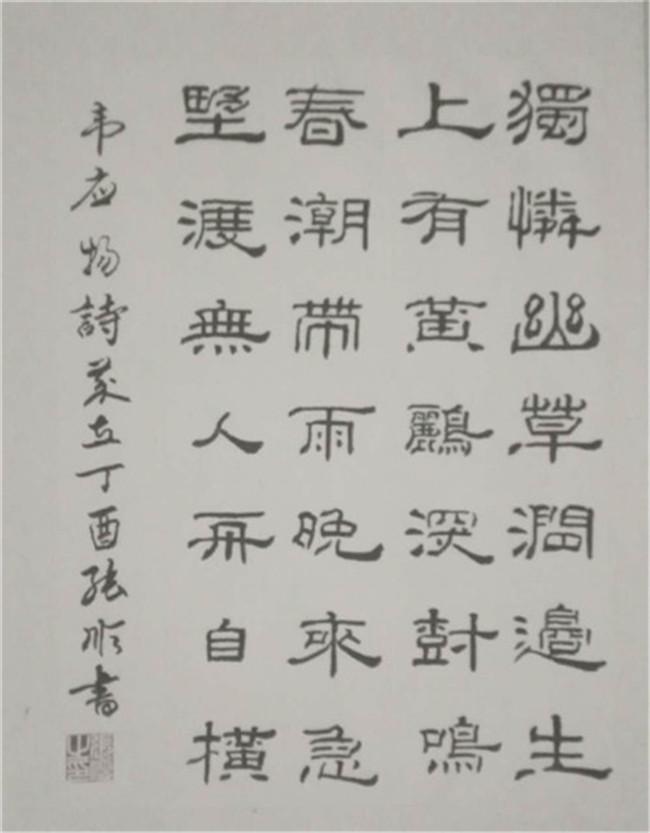 獨憐幽草澗邊生
上有黃鸝深樹鳴
春潮帶雨晚來急
野渡無人舟自橫
韦应物詩歲在丁酉张顺書